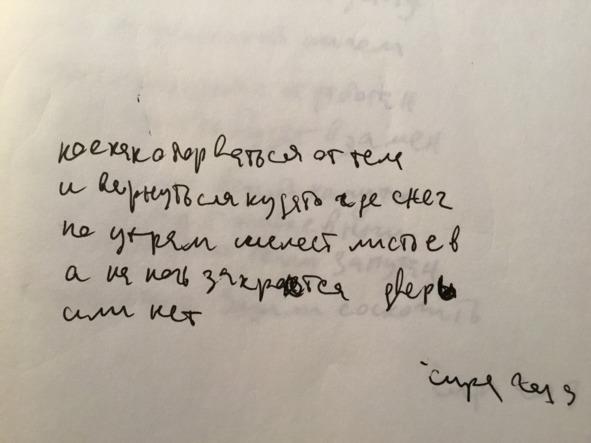 кое как оторваться от тела
и вернуться куда то где снег
по утрам шелест листьев
а на ночь закроется дверь
или нет